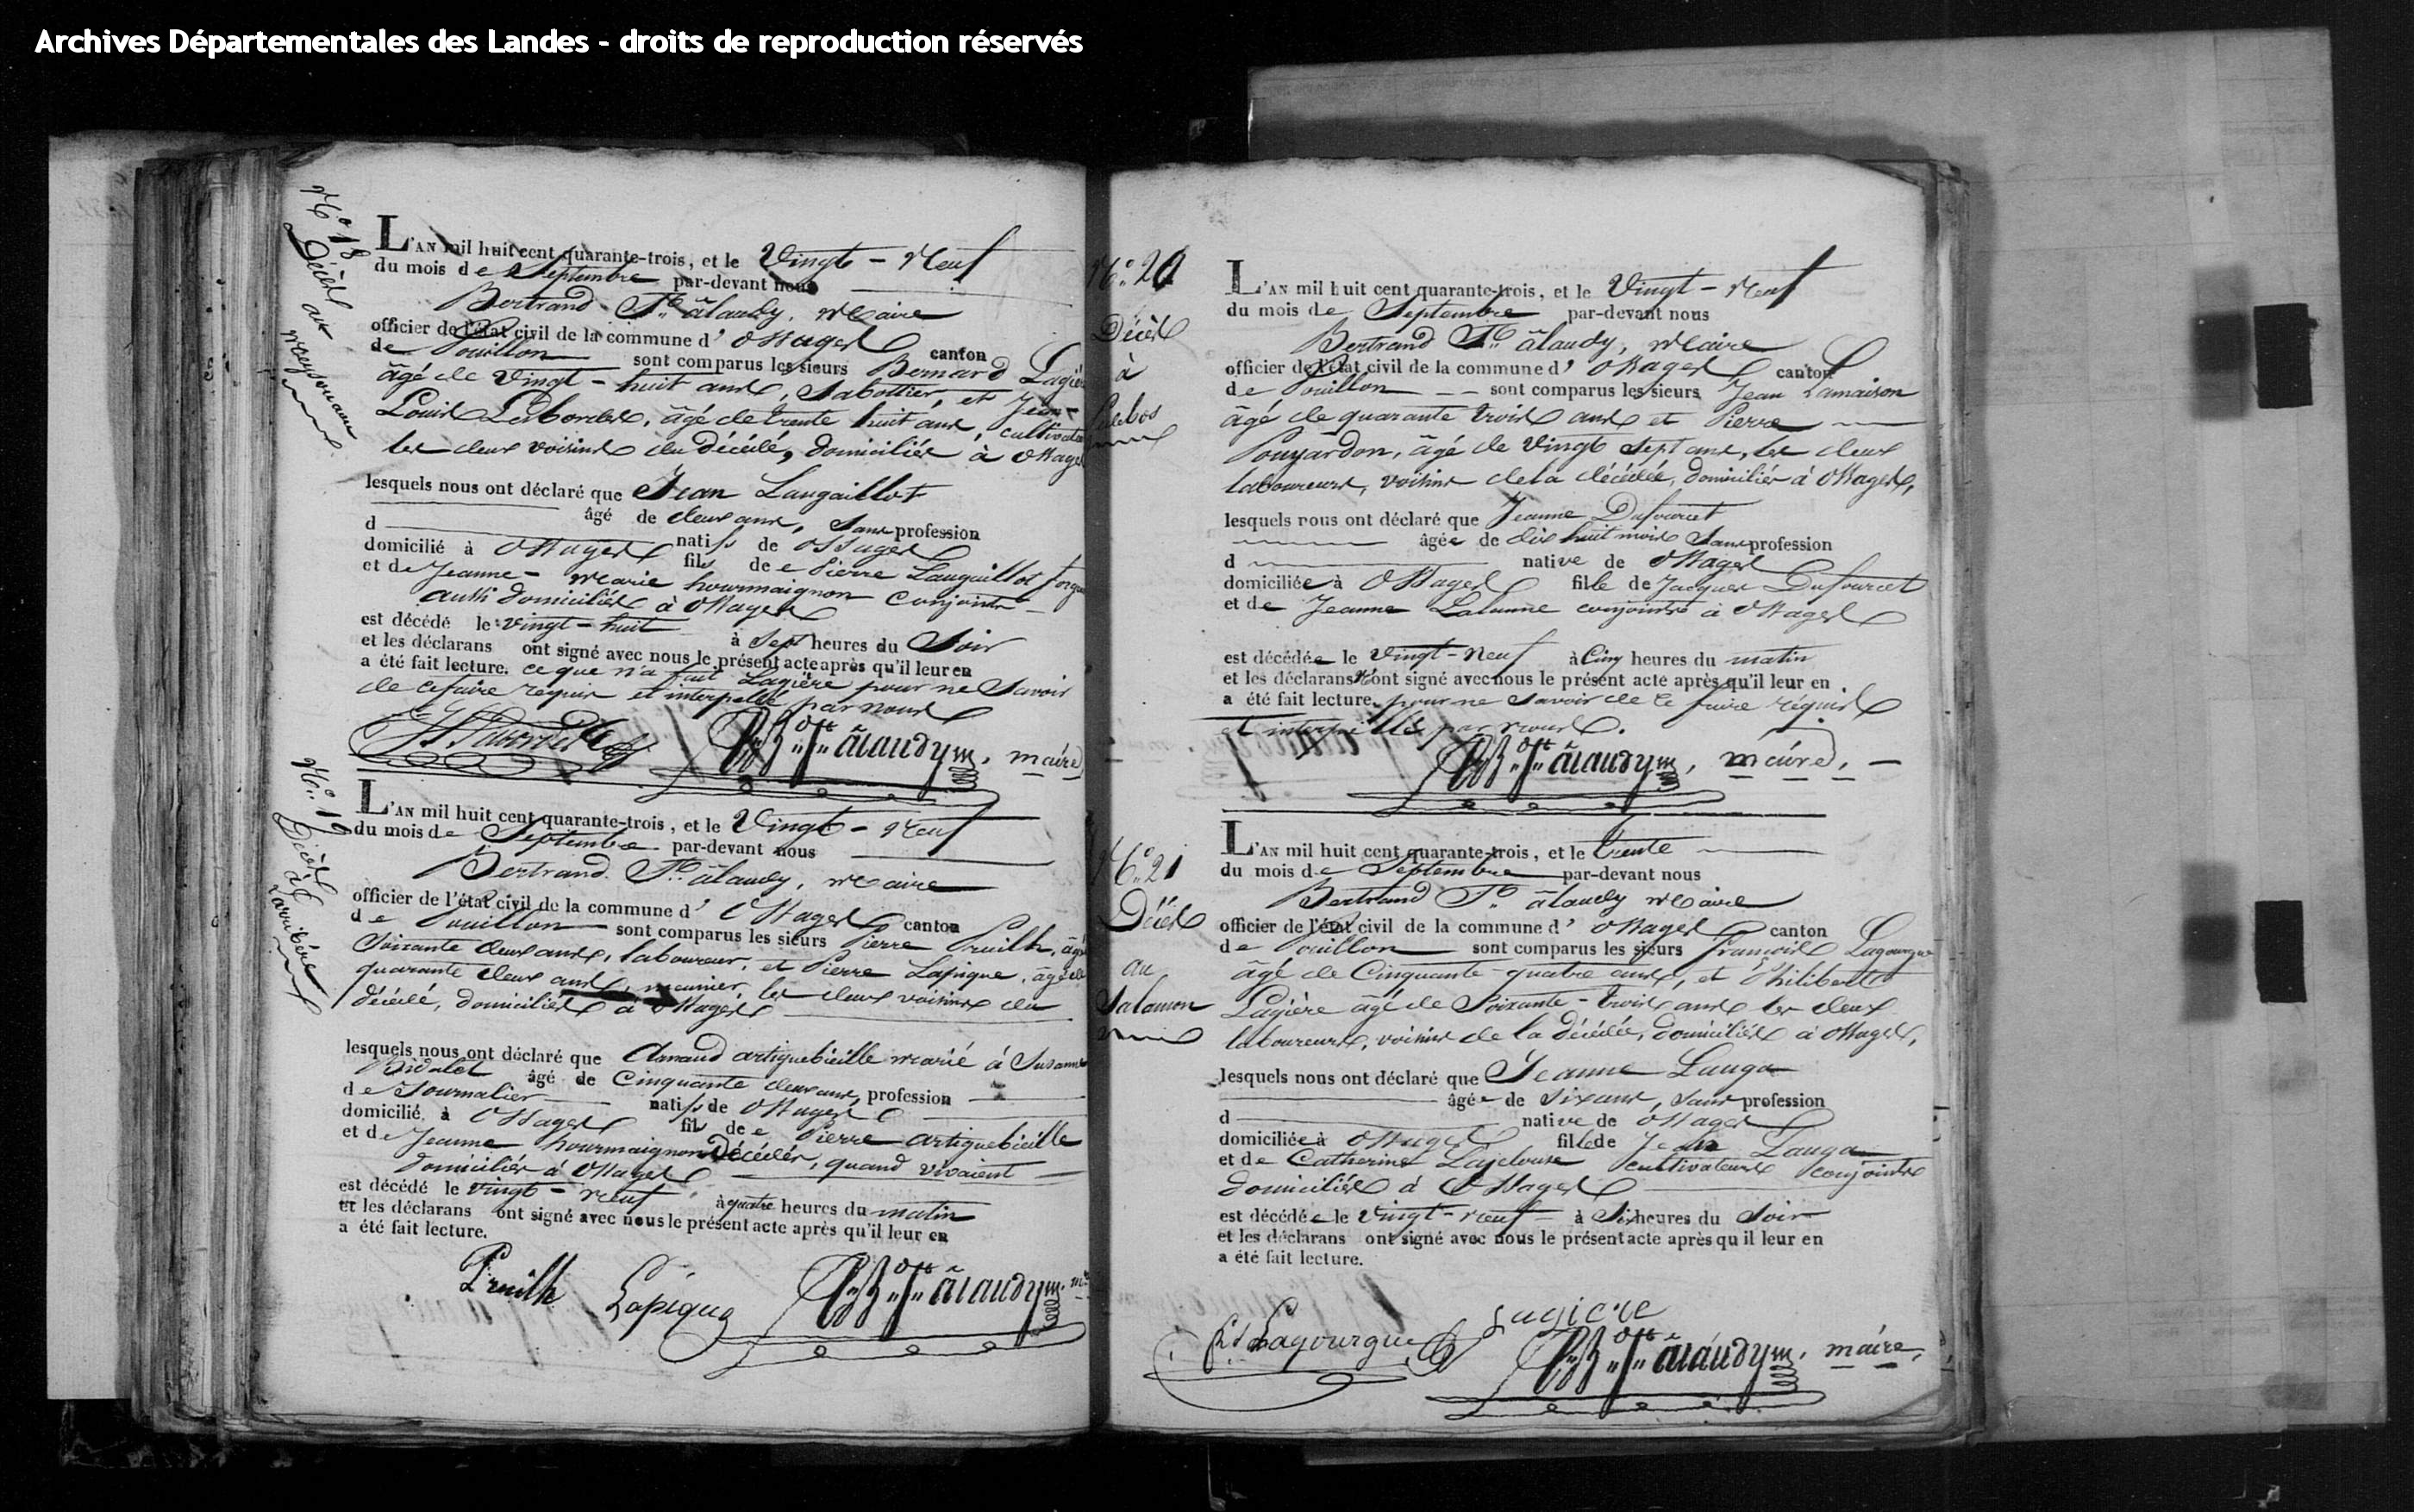 Archives Départementales des Landes - droits de reproduction réservés
N° 18
Décès
au
L'AN mil huit cent quarante-trois, et le Vingt - Neuf
du mois de Septembre par-devant nous
Bertrand maire
officier de l'état civil de la commune d' Ossages canton
de Pouillon sont comparus les sieurs Bernard Lagièr
âgé de Vingt - huit ans, Sabottier, et Jean -
Louis Labordes, âgé de trente huit ans, cultivate
les deux voisins du décédé, domiciliés à Ossage
lesquels nous ont déclaré que Jean Laugaillot
âgé de deux ans, Sans profession
d natif de Ossages
domicilié à Ossages fils de Pierre Laugaillot
et de Jeanne - Marie hourmaignon Conjoints
aussi domiciliés à Ossages
est décédé le vingt - huit à Sept heures du Soir
et les déclarans ont signé avec nous le présent acte après qu'il leur en
a été fait lecture. ce que n'a fait Lagière pour ne Savoir
de ce faire requis et interpellé par nous
maire
N° 19
Décès
à
Larribère
L'AN mil huit cent quarante-trois, et le Vingt - Neuf
du mois de Septembre par-devant nous
Bertrand maire
officier de l'état civil de la commune d' Ossages canton
de Pouillon sont comparus les sieurs Pierre Pruilh, âgé
Soixante deux ans, laboureur, et Pierre Lapique, âgé de
quarante deux ans, meunier, les deux voisins du
décédé, domiciliés à Ossages
lesquels nous ont déclaré que Arnaud artiguebieille marié à Susanne
Bidalot âgé de Cinquante deux ans, profession
de Journalier natif de Ossages
domicilié à Ossages fils de Pierre artiguebieille
et de Jeanne hourmaignon Décédés, quand vivaient
domiciliés à Ossages
est décédé le vingt - neuf à quatre heures du matin
et les déclarans ont signé avec nous le présent acte après qu'il leur en
a été fait lecture.
Pruilh Lapique
N° 20
Décès
à
L'AN mil huit cent quarante-trois, et le Vingt - Neuf
du mois de Septembre par-devant nous
Bertrand maire
officier de l'état civil de la commune d' Ossages canton
de Pouillon sont comparus les sieurs Jean Lamaison
âgé de quarante trois ans et Pierre
Pouyardon, âgé de Vingt Sept ans, les deux
laboureurs, voisins de la décédée, domiciliés à Ossages,
lesquels nous ont déclaré que Jeanne Dufourcet
âgée de dix huit mois Sans profession
d native de Ossages
domiciliée à Ossages fille de Jacques Dufourcet
et de Jeanne Lalanne conjoints à Ossages
est décédée le Vingt-Neuf à Cinq heures du matin
et les déclarans N'ont signé avec nous le présent acte après qu'il leur en
a été fait lecture. pour ne Savoir de ce faire réquis
et interpellés par nous.
maire.
N° 21
Décès
au
Salomon
L'AN mil huit cent quarante-trois, et le trente
du mois de Septembre par-devant nous
Bertrand maire
officier de l'état civil de la commune d' Ossages canton
de Pouillon sont comparus les sieurs François Lagourgue
âgé de Cinquante - quatre ans, et Philibert
Lagière âgé de Soixante - trois ans les deux
laboureurs, voisins de la décédée, domiciliés à Ossages,
lesquels nous ont déclaré que Jeanne Lauga
âgée de Six ans, Sans profession
d native de Ossages
domiciliée à Ossages fille de Jean Lauga
et de Catherine Lajelouse cultivateurs conjoints
domiciliés à Ossages
est décédée le Vingt - neuf à Six heures du Soir
et les déclarans ont signé avec nous le présent acte après qu'il leur en
a été fait lecture.
Lagourgue Lagiere
maire,